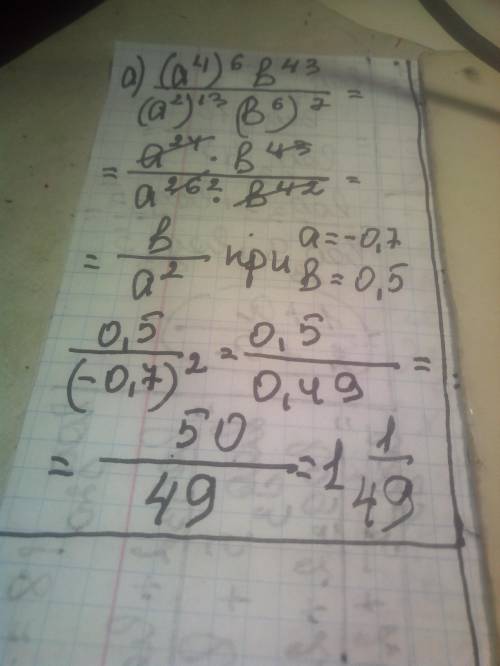 а) (a⁴)⁶ b⁴³ / (a²)¹³ (b⁶)⁷ =
= a²⁴ · b⁴³ / a²⁶ ² · b⁴² =
= b / a² при a = -0,7
b = 0,5
0,5 / (-0,7)² = 0,5 / 0,49 =
= 50 / 49 = 1 1/49